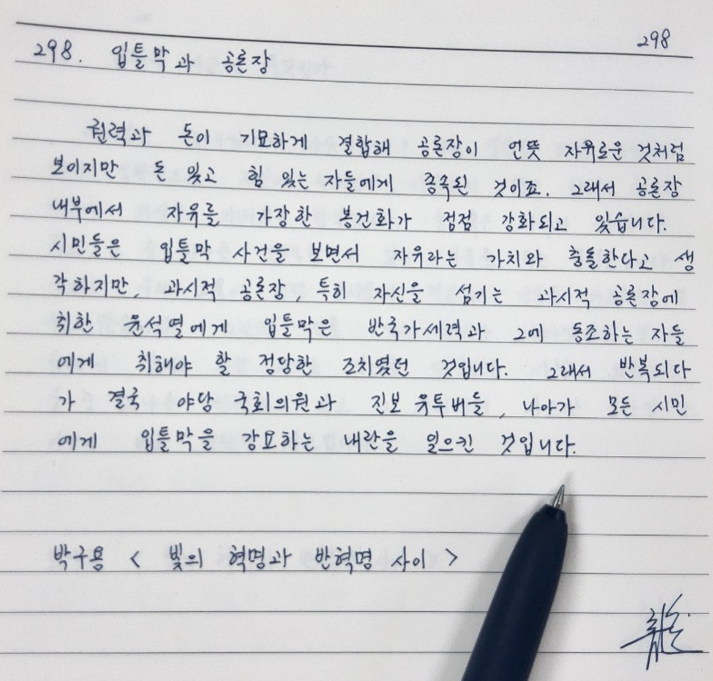 298
298. 입틀막과 공론장
권력과 돈이 기묘하게 결합해 공론장이 언뜻 자유로운 것처럼
보이지만 돈 있고 힘 있는 자들에게 종속된 것이죠. 그래서 공론장
내부에서 자유를 가장한 봉건화가 점점 강화되고 있습니다.
시민들은 입틀막 사건을 보면서 자유라는 가치와 충돌한다고 생
각하지만, 과시적 공론장, 특히 자신을 섬기는 과시적 공론장에
취한 윤석열에게 입틀막은 반국가세력과 그에 동조하는 자들
에게 취해야 할 정당한 조치였던 것입니다. 그래서 반복되다
가 결국 야당 국회의원과 진보 유투버들, 나아가 모든 시민
에게 입틀막을 강요하는 내란을 일으킨 것입니다.
박구용 < 빛의 혁명과 반혁명 사이 >